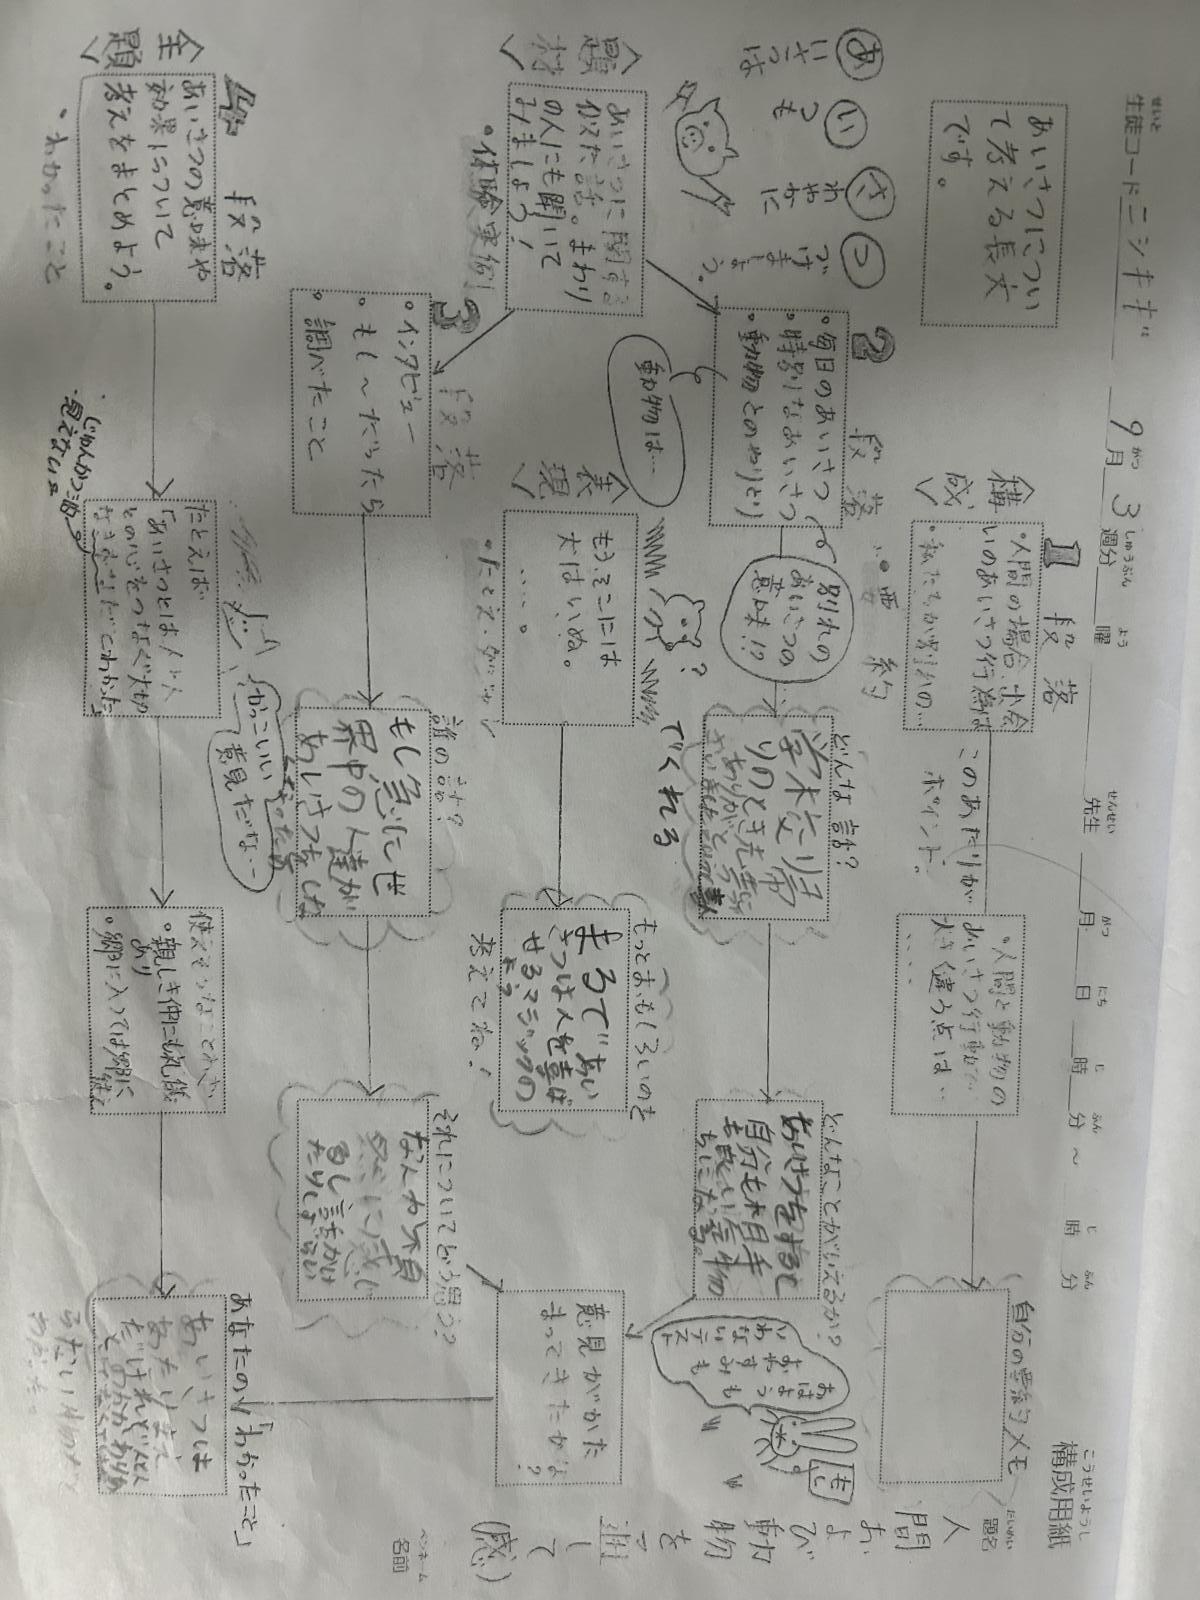 せいと
生徒コード ニシキギ 9月 3週分 曜 先生 月 日 時 分 ～ 時 分
構成用紙
こうせいようし
あいさつについ
て考える長文
です。
あ いさつは
い つも
さ わやかに
つ づけましょう。
〈構成〉
1段落
・人間の場合、出会
いのあいさつ行動は
このあたりが
ポイント。
・人間と動物の
あいさつ行動で
大きく違う点は…
・・・・
自分の要約メモ
題名
人間および動物を通して(感)
ペンネーム
名前
・要約
2段落
・毎日のあいさつ
・特別なあいさつ
・動物とのやりとり
動物は…
別れの
あいさつの
意味!?
どんな話?
学校の帰
りのとき先生に
ありがとうござ
いました
どんなことがいえるか?
あいさつをすると
自分も相手
も
〈題材〉
あいさつに関する
似た話。まわり
の人にも聞いて
みましょう!
・体験実例
〈表現〉
もう、そこには
犬はいぬ。
・・・・。
・たとえ
?
でくれる
もっとおもしろいのを
まるであい
さつは人を喜ば
せるマジックの
よう
考えてね!
意見がかた
まってきたかな
?
おはようも
おやすみも
いわないテスト
3段落
・インタビュー
・もし～だったら
・調べたこと
誰の話?
もし急にせ
界中の人達が
あいさつをしな
くなったら
それについてどう思う?
なんか不自
然に感じ
るし話をかけ
たりしづらい
〈主題〉
4段落
あいさつの意味や
効果について
考えをまとめよう。
・わかったこと
たとえば
「あいさつとは人と人
との心をつなぐ大切
なきずなだとわかった」
じゅんかつ油
見えない
かっこいい
意見だな…
使えそうなことわざ
・親しき仲にも礼儀
あり
・郷に入っては郷に
従え
あなたの「わかったこと」
あいさつは
あたりまえ
だけれどなくては